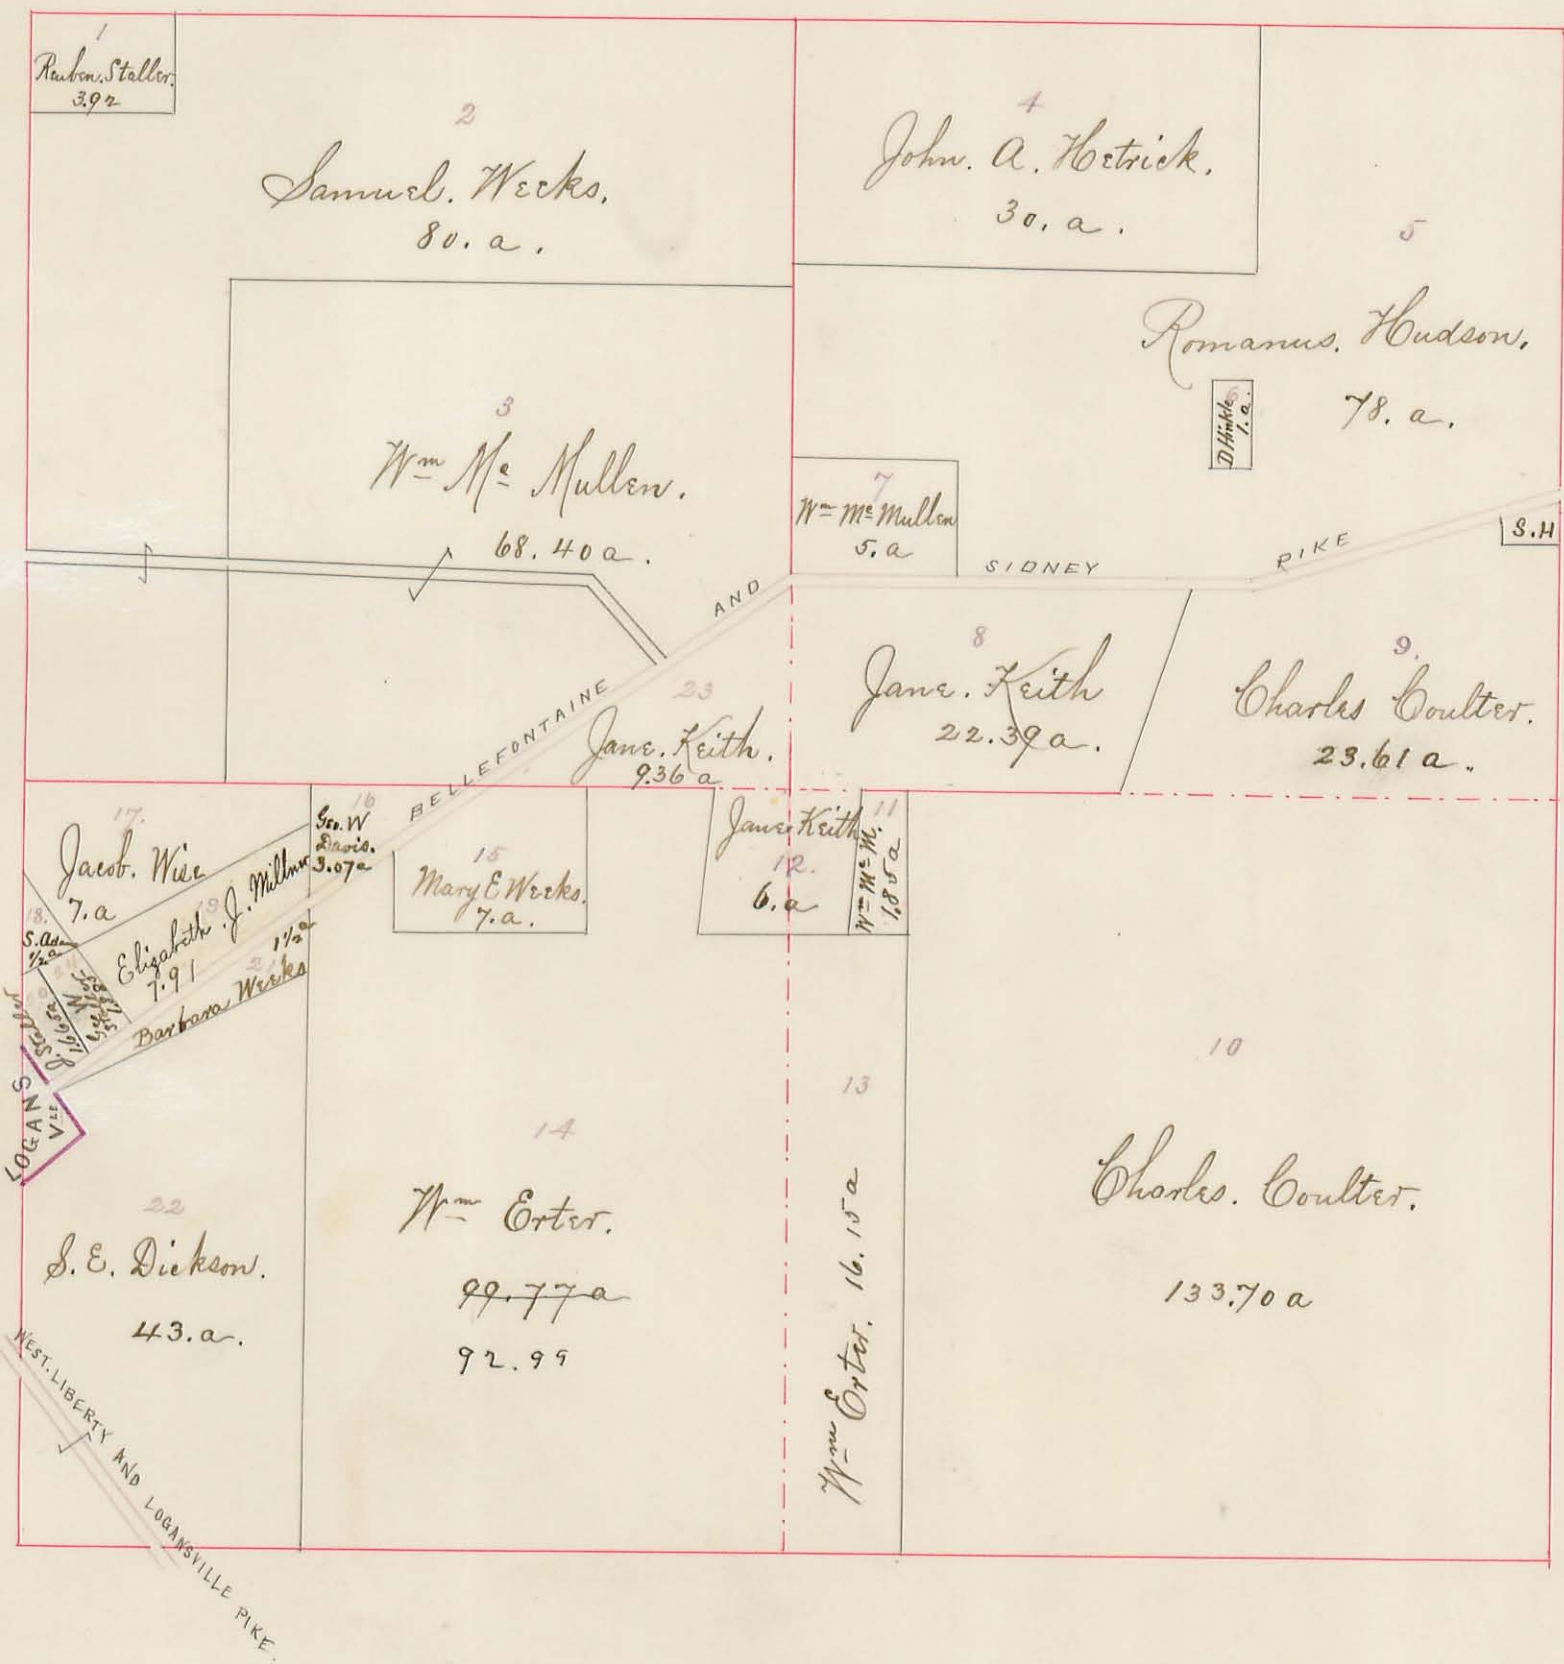 1
Reuben. Staller.
3.92
2
Samuel. Weeks.
80. a.
4
John. A. Hetrick.
30. a.
5
Romanus. Hudson.
78. a.
6
D Hinkle
1. a.
3
Wm Mc Mullen.
68.40 a.
7
Wm Mc Mullen
5. a
S.H
BELLEFONTAINE AND SIDNEY PIKE
8
Jane. Keith
22.39 a.
9.
Charles Coulter.
23.61 a.
23
Jane. Keith.
9.36 a
17.
Jacob. Wise
7. a
16
Geo. W
Davis.
3.07 a
15
Mary E Weeks.
7. a.
Jane Keith
12.
6. a
11
Wm Mc M.
1.85 a
18.
S. Adam
1/2 a
19
Elizabeth. J. Millner
7.91
1 1/2 a
21
Barbara Weeks
J. Staller
1.66
Geo W
LOGANS
VLE
10
Charles. Coulter.
133.70 a
13
Wm Erter. 16.15 a
14
Wm Erter.
99.77 a
92.99
22
S. E. Dickson.
43. a.
WEST. LIBERTY AND LOGANSVILLE PIKE.